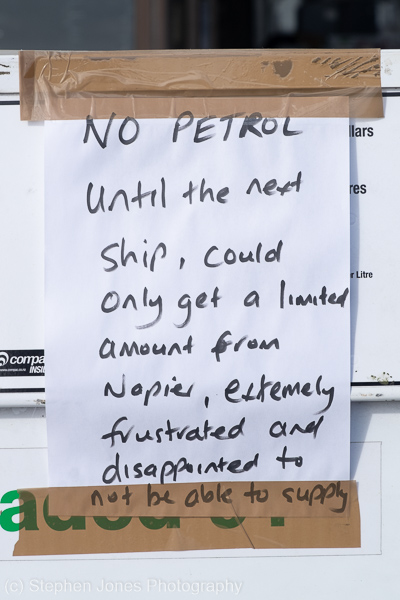 NO PETROL
llars
until the next
res
ship, could
r Litre
only get a limited
amount from
compa
INSI
Napier, extemely
frustrated and
disappointed to
not be able to supply
aded 91
(c) Stephen Jones Photography